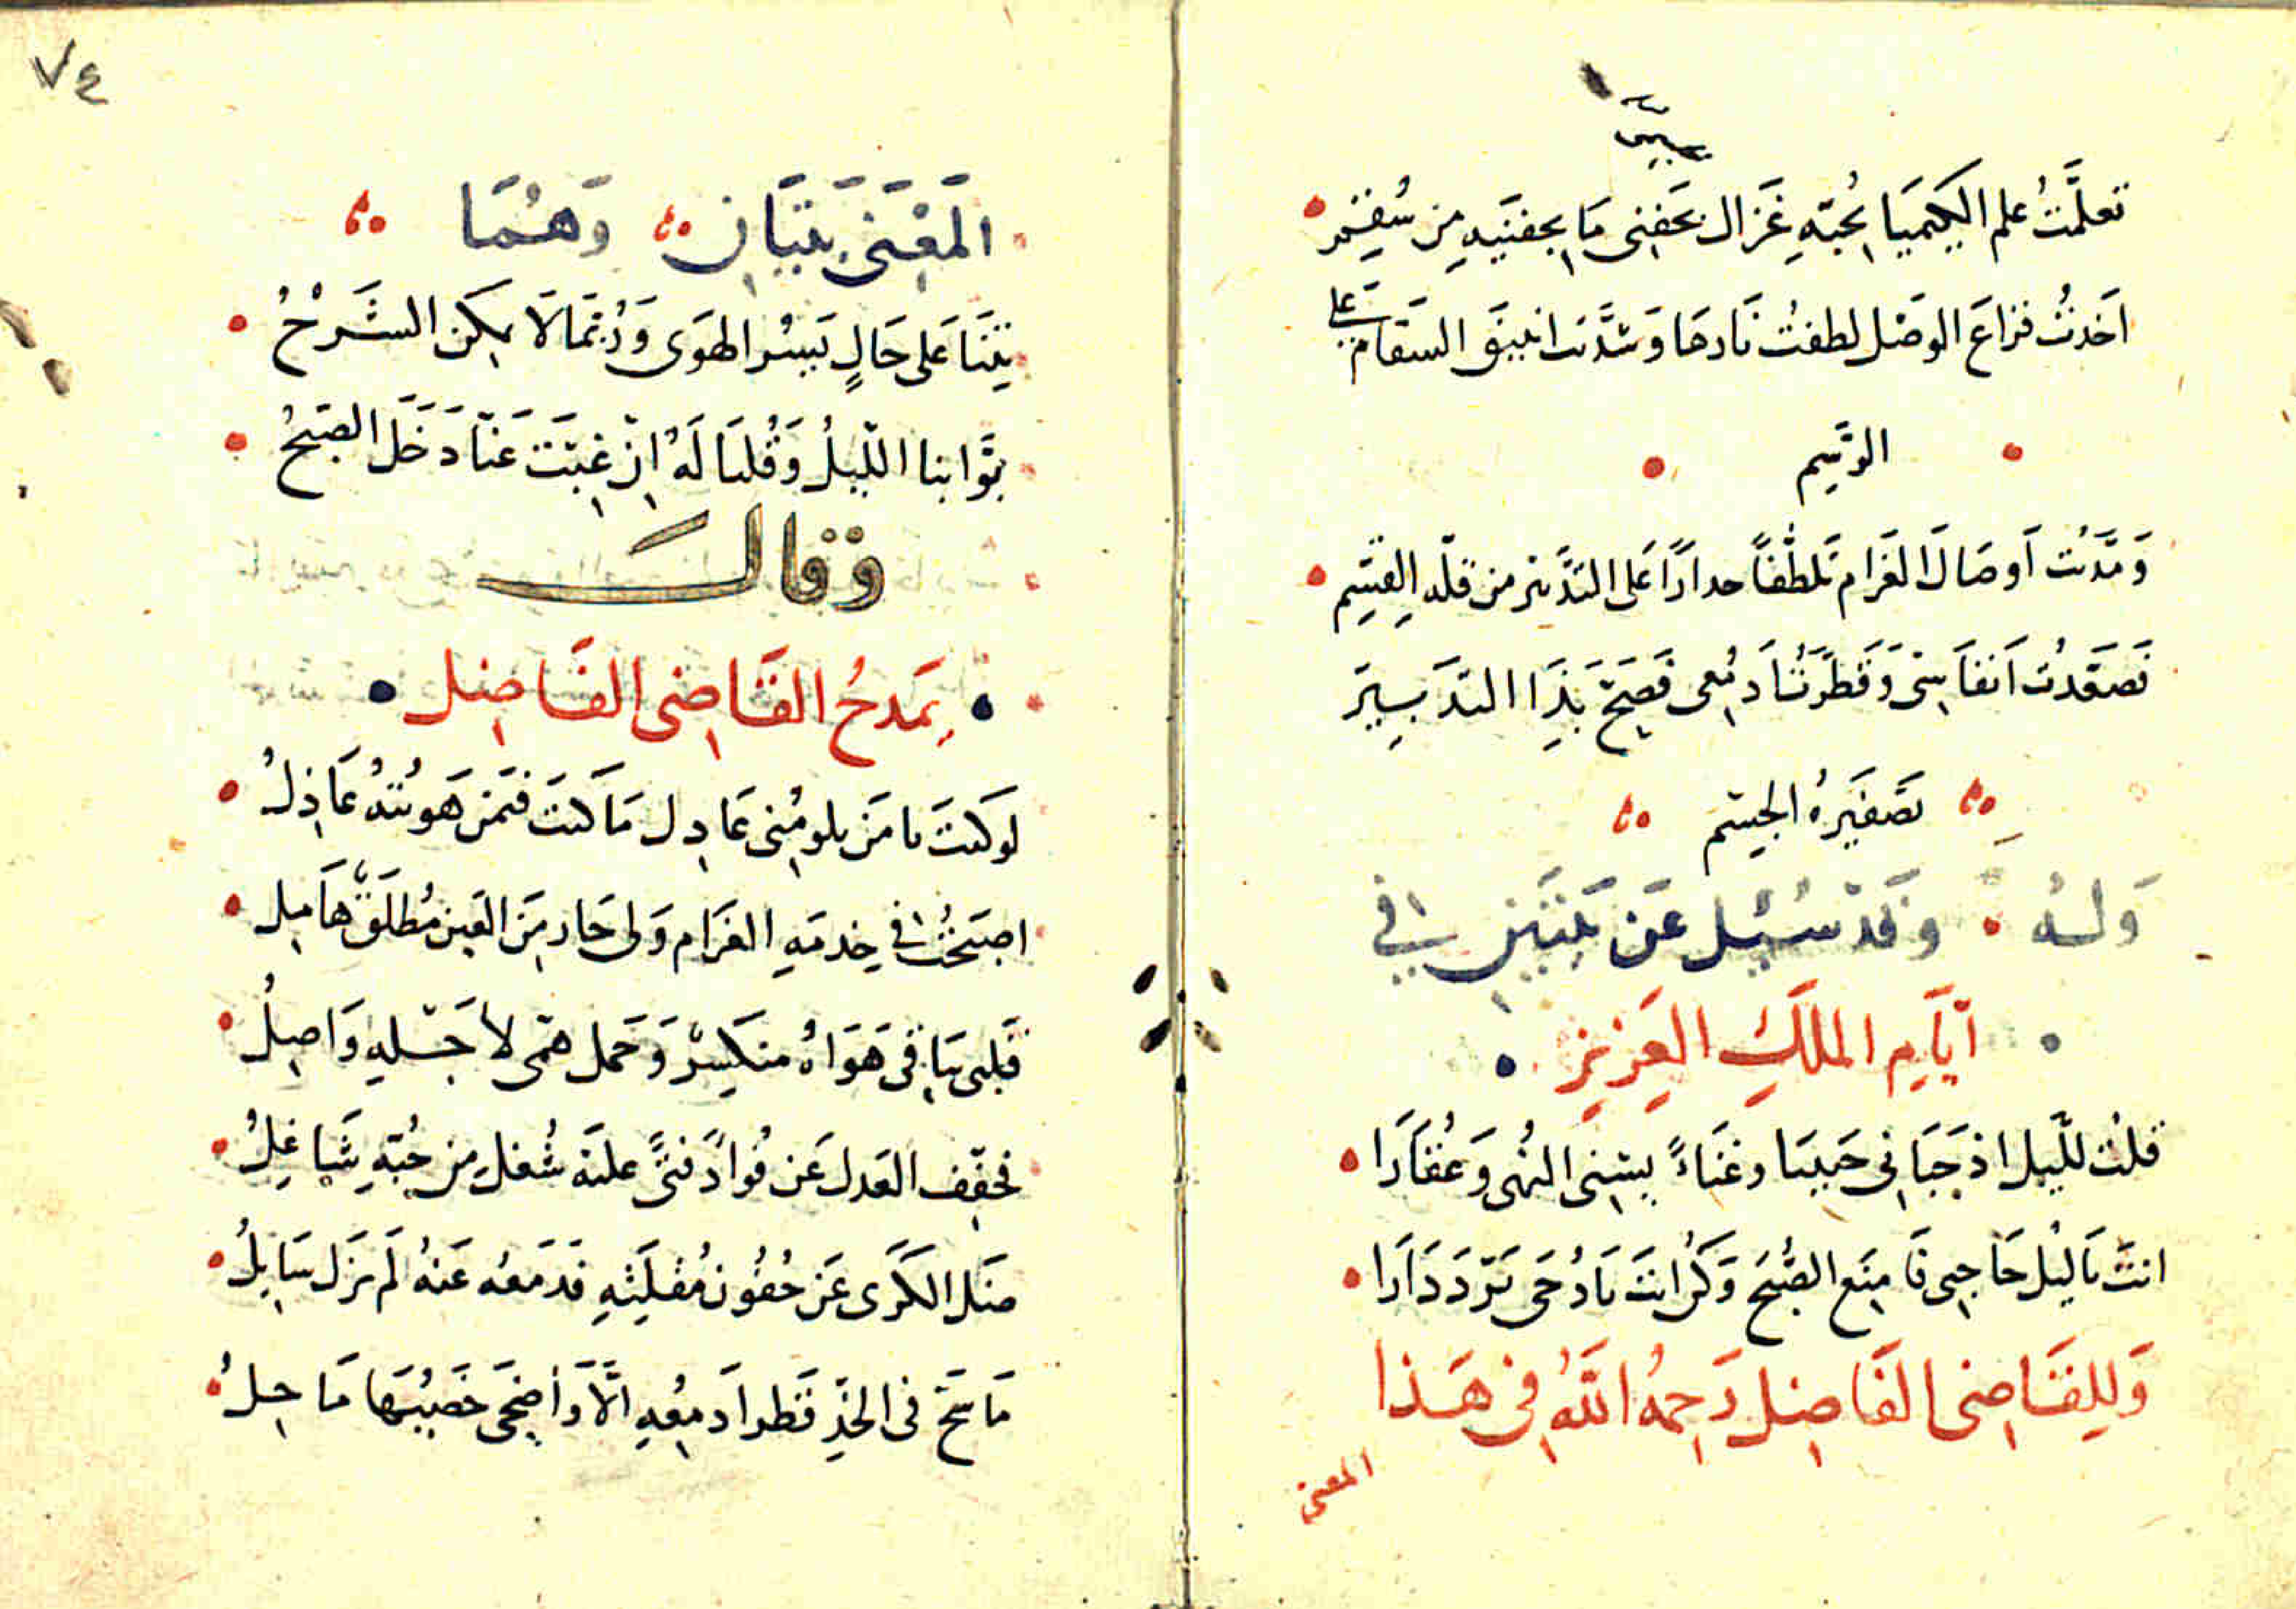 تعلَّمتُ علم الكيميَا بحُبّهِ غَزال بحَفنى مَا بجفنَيهِ مِن سُقمٍ
اَخذتُ فراعَ الوصْل لطفتُ نَارهَا وَشدَّت انبيقَ السقَام عَلى
الرَّسِيم
وَمَدَّتُ اَوصَالَ الغَرام تَلطّفاً حداراً عَلى التدَّبير من قلّه القسِّم
فَصعَّدتُ اَنفَاسِى وَقَطَّرتُ اَدمُعى فَصَحّ بِذَا التدَبِير
تصَفِيَرهُ الجِسّم
وَلهُ وَقَدْ سُئِل عَن بَيتَينِ فى
اَيّام الملَكِ العَزِيزِ
قلتُ للّيل اذ حَبَانى حَبيبَا وغنَاءً يسبىِ النُهى وَعُقَارَا
انتَ يَا ليْل حَاجبى فَامنَع الصُّبحَ وَكُن انتَ يَا دُحَى بَرّدَدَارَا
وَلِلقَاضِى الفَاضِل رَحِمهُ اللَّهُ فى هَذا
المعنى
٧٤
المَعْنَى بَيتَان وَهُمَا
بِتنَا عَلى حَالٍ يَسُر الهوَى وَرُبّمَا لَا يمكَن الشَرْحُ
بَوَّابنا اللّيلُ وَقُلنَا لَهُ اِنّ غِبّتَ عَنّا دَخَل الصّبحُ
وَقالَ
يَمدحُ القَاضِى الفَاضِل
لوَ كنتَ يا مَن يلومُنِى عَادِل مَا كنتَ فيَمن هَويُتهُ عَاذِلُ
اصبَحْتُ فى خِدمَهِ الغَرَام وَلى جَارٍ مِنَ العَين مُطلَقٌ هَامِل
قَلبى بَاقِى هَوَاهُ منكَسِرْ وَحَمل هَمّى لأجَلهِ وَاصِلُ
فخفِّف العَدلَ عَن فُوادً فتىً عليَه شُغل مِن حُبّهِ شَاغِلُ
سَل الكَرَى عَن جُفوُن مُقلَتهِ فَدَمعُه عَنهُ لَم يَزَل سَايِلُ
مَا سَحّ فى الخدِّ قَطر اَدمعُهِ الّا وَأضحَى خَصيبُهَا مَاحِلُ